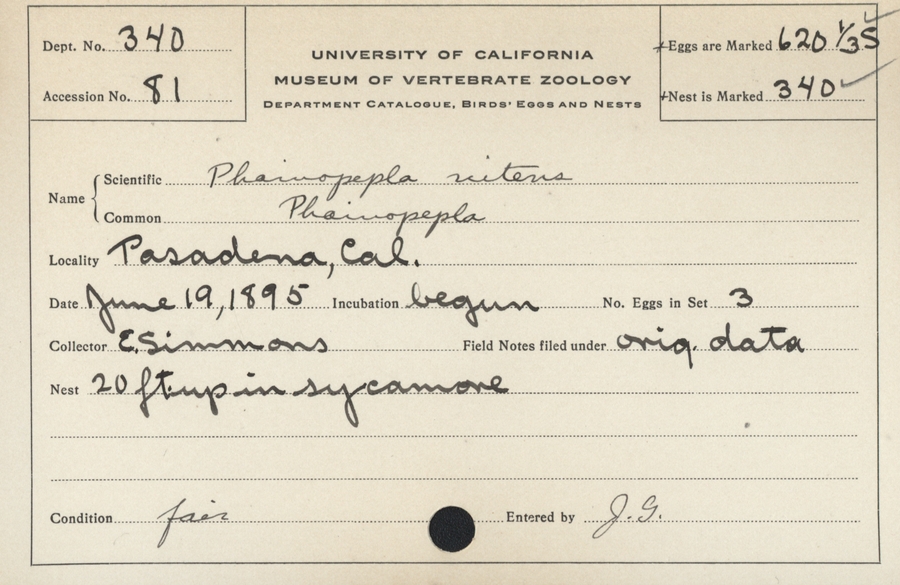 Dept. No. 340
Accession No. 81
UNIVERSITY OF CALIFORNIA
MUSEUM OF VERTEBRATE ZOOLOGY
DEPARTMENT CATALOGUE, BIRDS' EGGS AND NESTS
Eggs are Marked 620 1/35
Nest is Marked 340
Name
Scientific Phainopepla nitens
Common Phainopepla
Locality Pasadena, Cal.
Date June 19, 1895 Incubation begun No. Eggs in Set 3
Collector E. Simmons Field Notes filed under orig. data
Nest 20 ft. up in sycamore
Condition fair Entered by J.G.